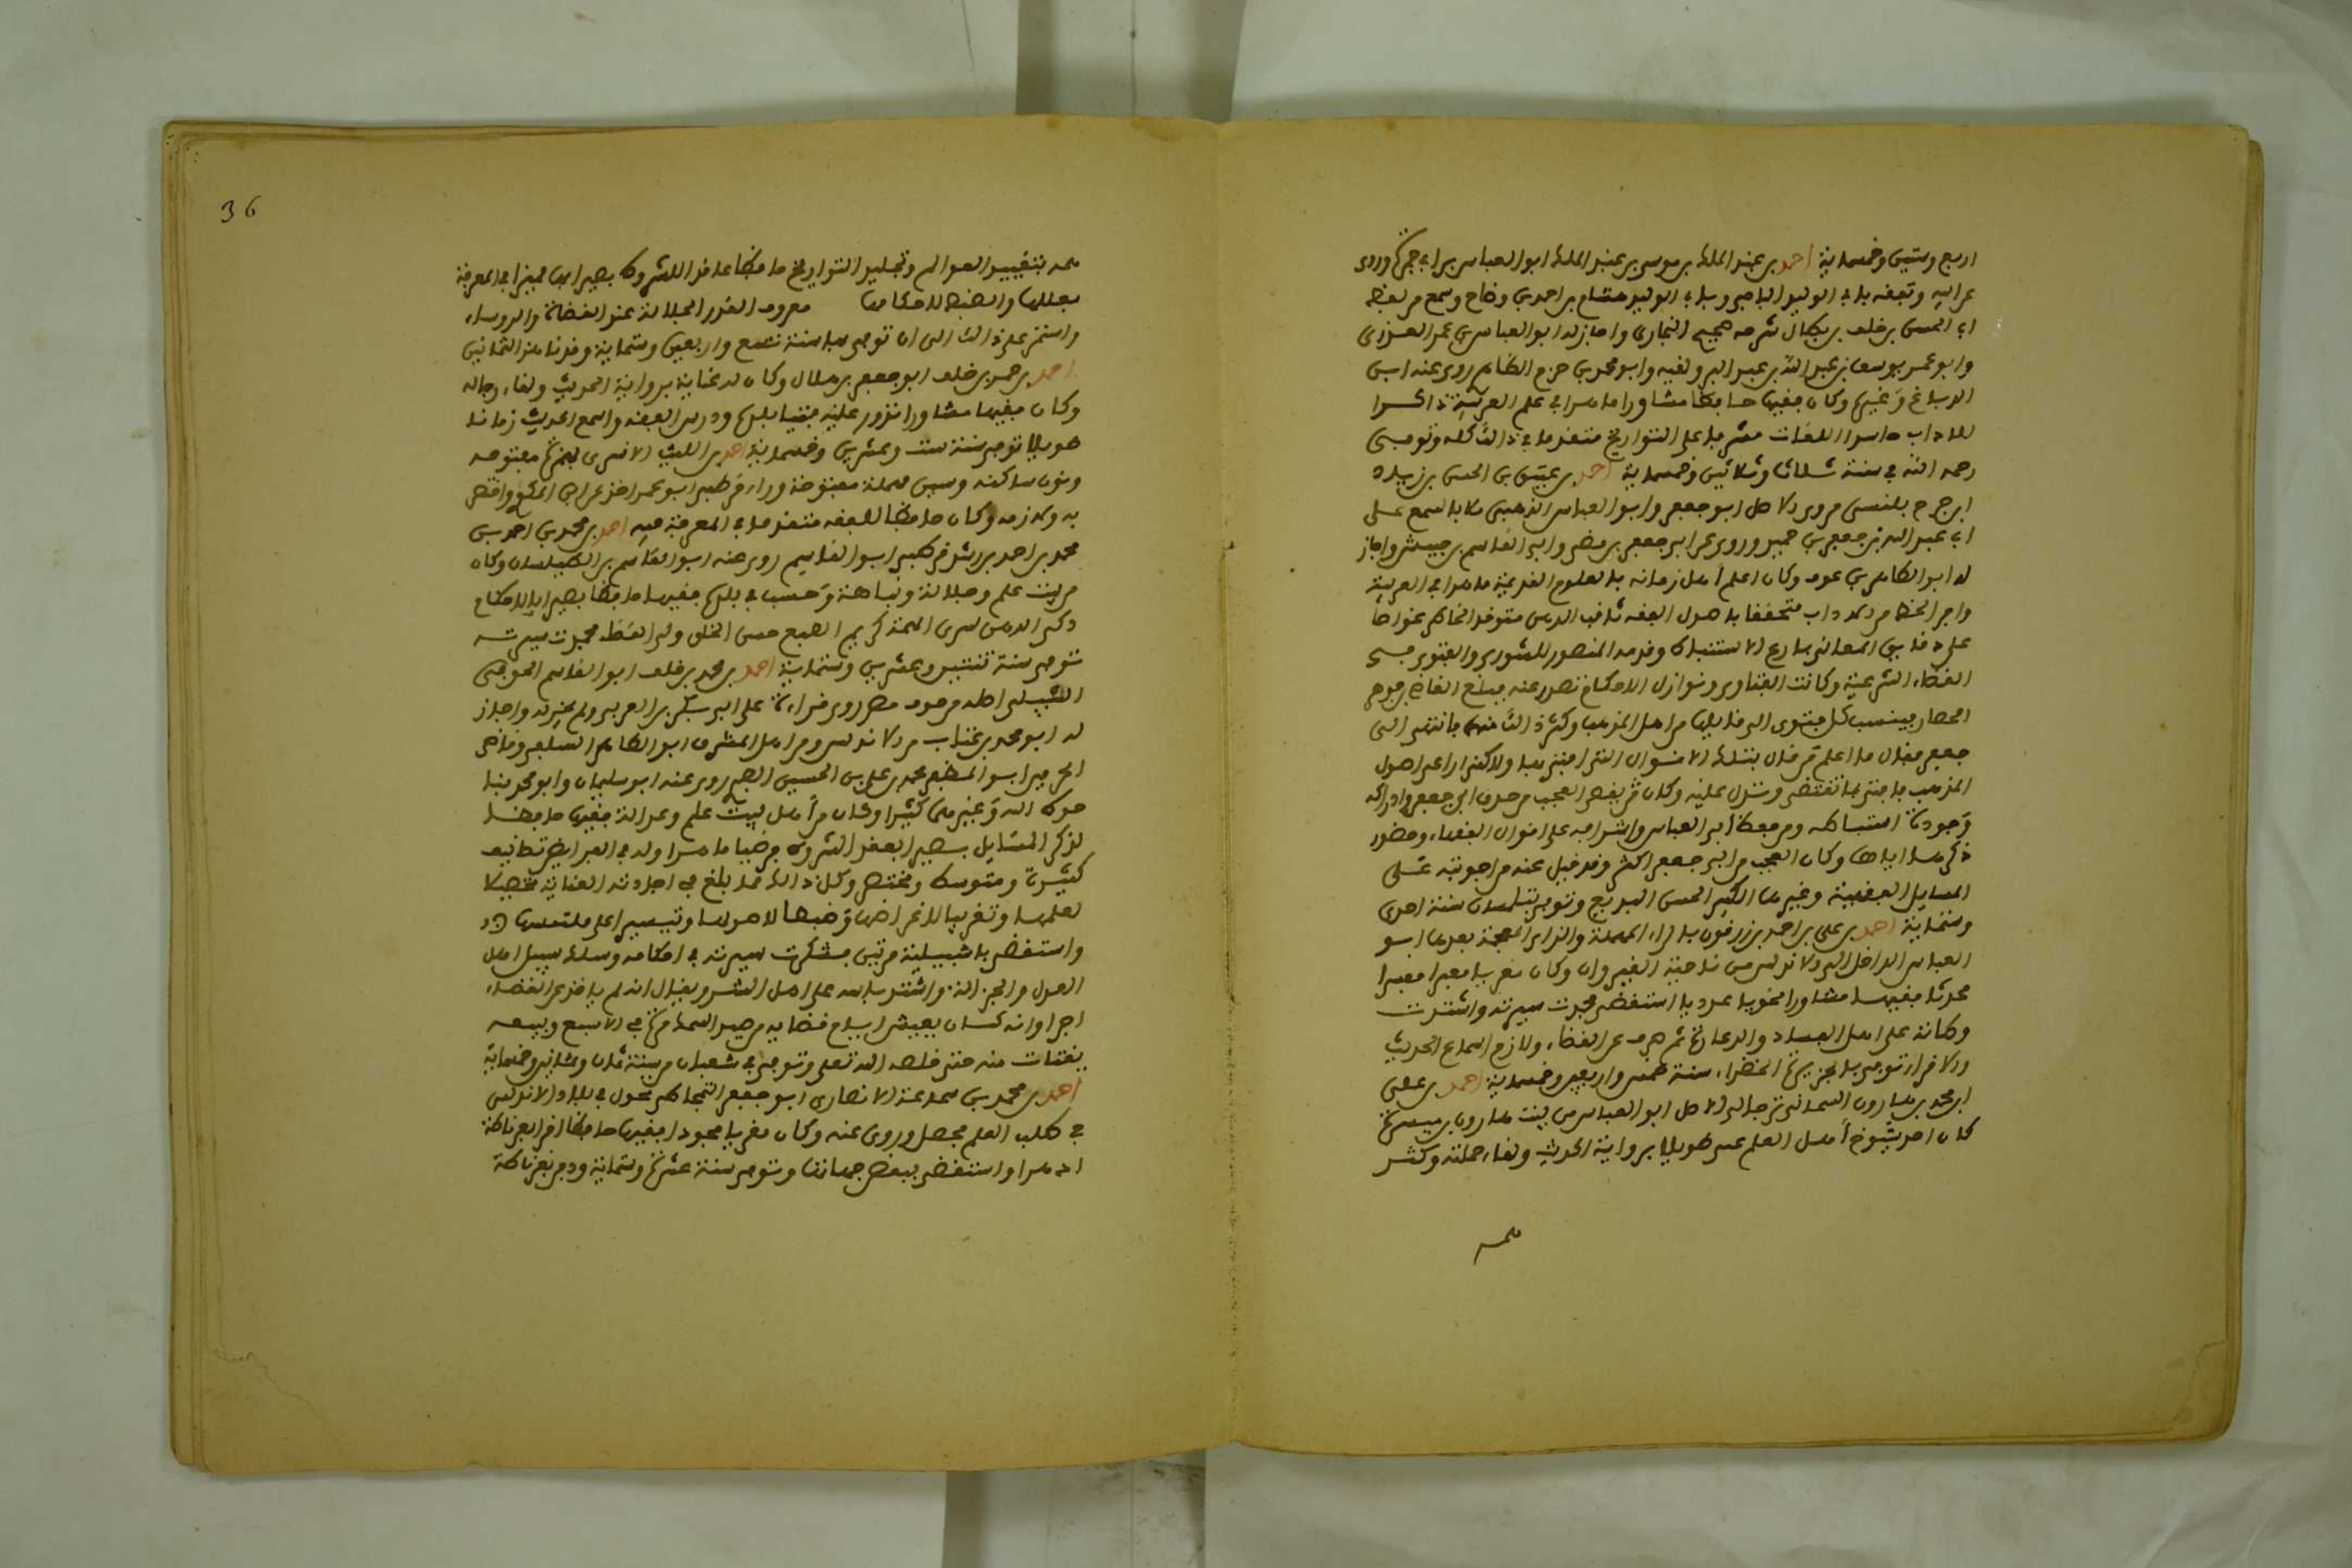 اربع وستين وخمسماية احمد بن عبد الملك بن موسى بن عبد الملك ابو العباس بن ابي جمرة وروى
عن ابيه وتفقه بابي الوليد الباجي وبابي الوليد هشام بن احمد بن وضاح وسمع من لفظ
ابي الحسن بن خلف بن بطال شرحه صحيح البخاري واجاز له ابو العباس بن عمر العذري
وابو عمر يوسف بن عبد الله بن عبد البر ولقيه وابو محمد بن حزم الظاهر روى عنه ابن
الدباغ وغيره وكان فقيها حافظا مشاورا ماهرا في علم العربية ذاكرا
للاداب واللغات مشرفا على التواريخ متقدما في ذلك كله وتوفي
رحمه الله في سنة ثلاث وثلاثين وخمسماية احمد بن عتيق بن الحسن بن زياد
ابن جرج بلنسي مروي الاصل ابو جعفر وابو العباس الذهبي سمع على
ابي عبد الله بن جعفر بن حميد وروى عن ابي جعفر بن مضى وابي القاسم بن حبيش واجاز
له ابو الطاهر بن عوف وكان اعلم اهل زمانه بالعلوم القديمة ماهرا في العربية
وافر الحظ من الاداب متحققا باصول الفقه ثاقب الذهن متوقد الخاطر غواصا
على دقايق المعاني بارع الاستنباط وقدمه المنصور للشورى والفتوى في
القضاء الشرعية وكانت الفتاوى ونوازل الاحكام تصدر عنه فبلغ
كل فتوى الى قايلها من اهل المذهب وكثر ذلك منه فانتهى الى
جعفر فقال ما اعلم من قال بتلك الاقوال التي افتي بها ولاكني اراعي اصول
المذهب فافتي بما تقتضي وتدل عليه وكان يقضى العجب من حذق ابي جعفر وادراكه
وجودة استنباطه ومن حفظ ابي العباس واشرافه على اقوال الفقهاء وحضور
ذكره اياها وكان العجب من ابي جعفر اكثر وقد قيل عنه من اجوبته على
المسايل الفقهية وغيرها الكثير الحسن البديع وتوفي بتلمسان سنة احدى
وستماية احمد بن علي بن احمد بن زرقون بالراء المهملة والزاي المعجمة بعدها ابو
العباس الداخل الى الاندلس من ناحية القيروان وكان مقريا مفسرا
محدثا فقيها مشاورا نحويا عدديا استقضي فحمدت سيرته واشتدت
وطاته على اهل الفساد والدعارة ثم صرف عن القضاء ولازم اسماع الحديث
والاقراء توفي بالجزيرة الخضراء سنة خمس واربعين وخمسماية احمد بن علي
ابن محمد بن هارون السماتي نزجالي الاصل ابو العباس من بيت هارون بن ميسرة
كان احد شيوخ اهل العلم عني طويلا برواية الحديث ولقاء حملته وكثر
همه
36
همه بتقييد العوالي وتخليد التواريخ حافظا عاقدا للشروط بصيرا بها مميزا في المعرفة
بعللها والضبط لاحكامها معروف القدر الجلالة عند القضاة والروساء
واستمر على ذلك الى ان توفي بها سنة تسع واربعين وستماية وقد ناهز الثمانين
احمد بن عمر بن خلف ابو جعفر بن هلال وكان له عناية برواية الحديث ولقاء رجاله
وكان فقيها مشاورا تدور عليه فتيا بلده ودرس الفقه واسمع الحديث زمانا
طويلا توفي سنة ست وعشرين وخمسماية احمد بن الليث الانسري بهمزة مفتوحة
ونون ساكنة وسين مهملة مفتوحة وراء قرطبي ابو عمر اخذ عن ابي المكوي واختص
به ولازمه وكان حافظا للفقه متقدما في المعرفة فيه احمد بن محمد بن احمد بن
محمد بن احمد بن رشد قرطبي ابو القاسم روى عنه ابو القاسم بن الطيلسان وكان
من بيت علم وجلالة ونباهة وحسب في بلده فقيها حافظا بصيرا بالاحكام
ذكي الذهن سري الهمة كريم الطبع حسن الخلق ولي القضاء فحمدت سيرته
توفي سنة ثنتين وعشرين وستماية احمد بن محمد بن خلف ابو القاسم الحوفي
اشبيلي اصله من حوف مصر روى قراءة على ابي بكر بن العربي ولم يجز له واجاز
له ابو محمد بن عتاب من الاندلس ومن اهل المشرق ابو الطاهر السلفي وقاضي
الحرمين ابو المظفر محمد بن علي بن الحسين الطبري روى عنه ابو سليمان وابو محمد بنا
حوط الله وغيرهما كثيرا وكان من اهل بيت علم وعدالة فقيها حافظا
لذكر المسايل بصيرا بعقد الشروط فرضيا ماهرا وله في الفرايض تصانيف
كثيرة ومتوسط ومختصر وكل ذلك مما بلغ في اجادته الغاية تحصيلا
لعلمها وتقريبا لاغراضها وضبطا لاصولها وتيسيرا على ملتمسها
واستقضي باشبيلية مرتين فشكرت سيرته في احكامه وسلك سبيل اهل
العدل والجزالة واشتد باسه على اهل الشر ويقال انه لم ياخذ على القضاء
اجرا وانه كان يعيش ايام قضايه من صيد السمك مرة في الاسبوع وبيعه
يقتات منه حتى خلصه الله تعلى وتوفي في شعبان من سنة ثمان وثمانين وخمسماية
احمد بن محمد بن سماعة الانصاري ابو جعفر تجول في بلاد الاندلس
في طلب العلم فحصل وروى عنه وكان مقريا مجودا فقيها حافظا اقرا بغرناطة
واستقضي ببعض جهاتها وتوفي سنة عشرة وستماية ودفن بغرناطة